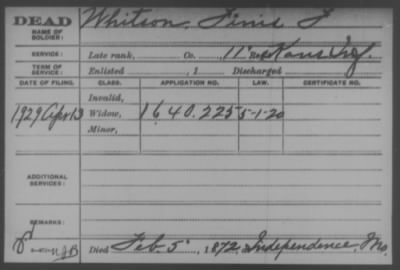 DEAD
NAME OF SOLDIER: Whitson, Finis F
SERVICE: Late rank, Co. 11" Reg Kans Inf.
TERM OF SERVICE: Enlisted , 1 Discharged
DATE OF FILING. CLASS. APPLICATION NO. LAW. CERTIFICATE NO.
Invalid,
1929 Apr 13 Widow, 1640.225 5-1-20
Minor,
ADDITIONAL SERVICES:
REMARKS:
Died Feb. 5", 1872, Independence, Mo.